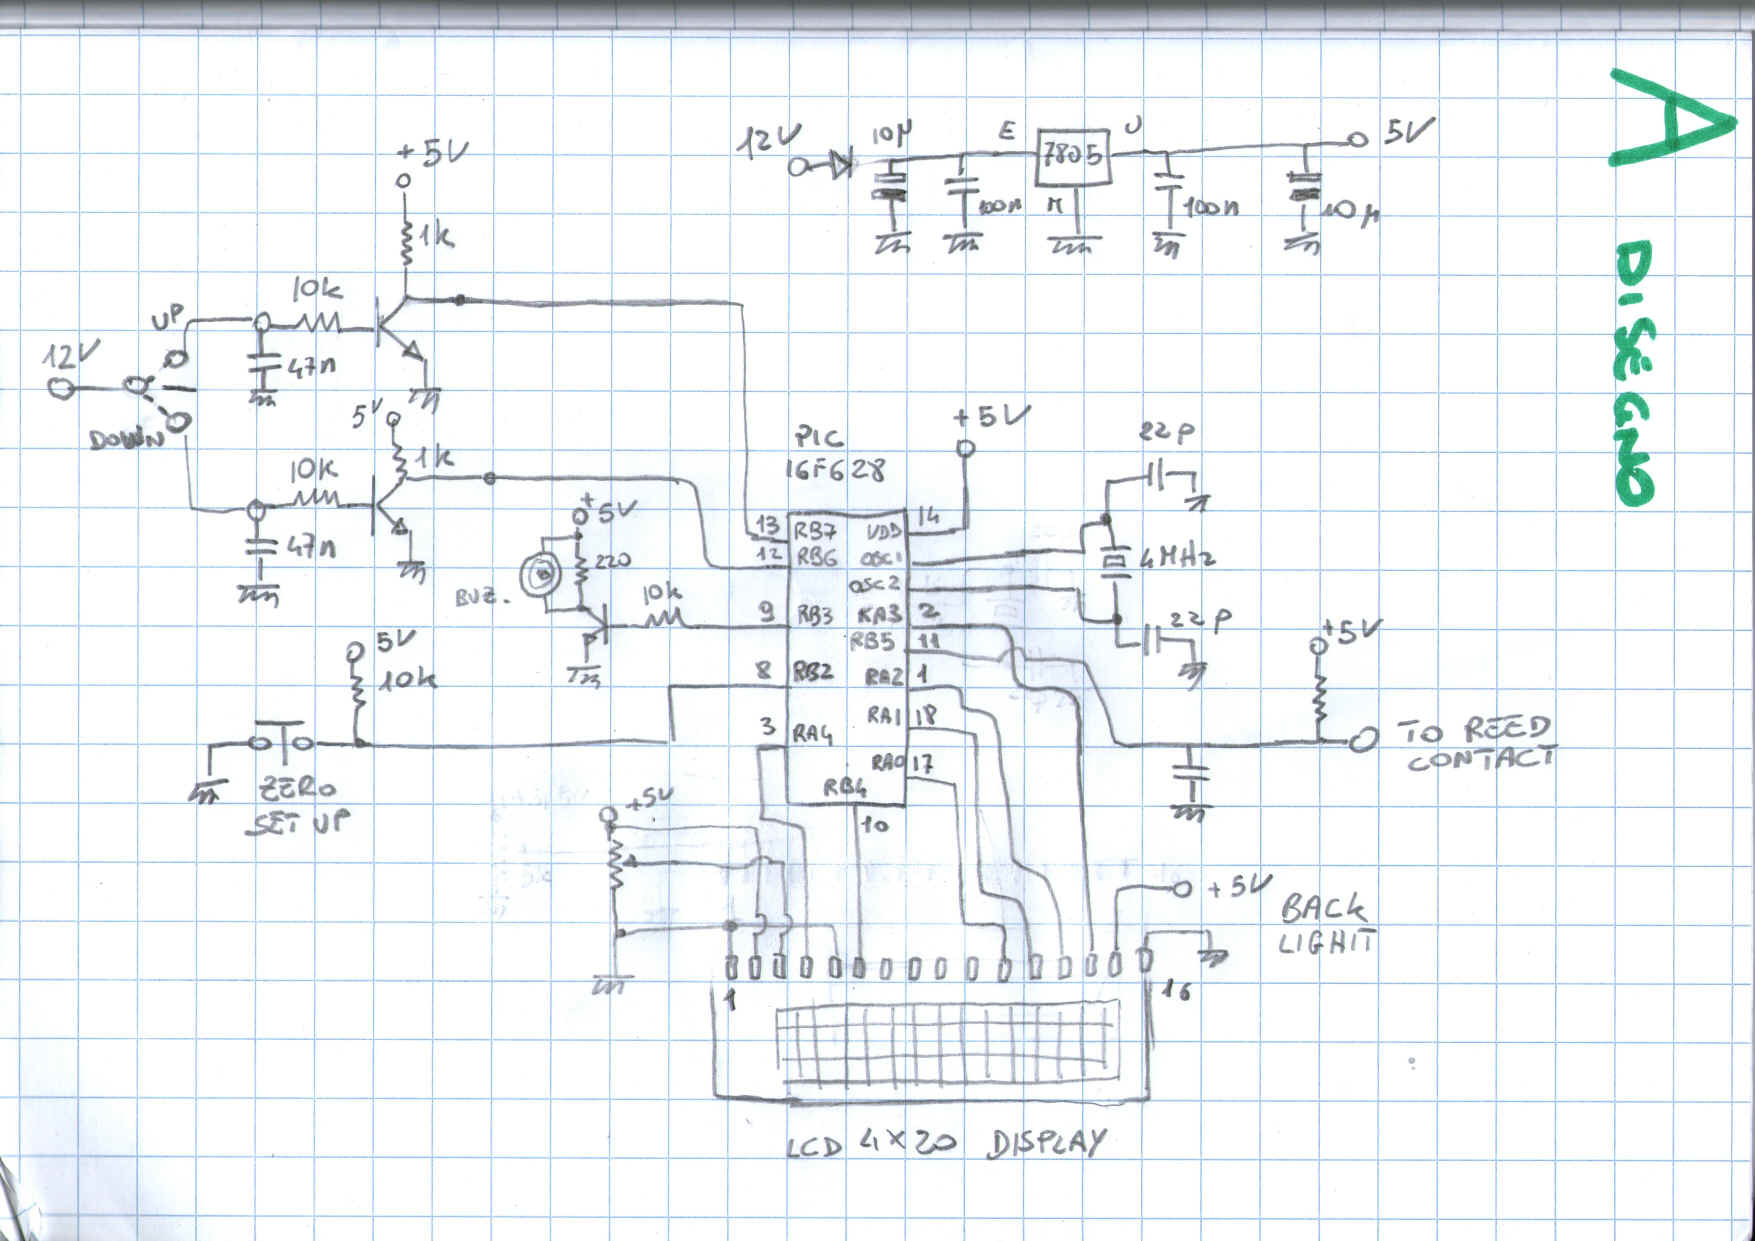 A DISEGNO
12V
10µ
E
7805
U
5V
100n
M
100n
10µ
+5V
1k
10k
UP
47n
12V
DOWN
5V
1k
10k
47n
+5V
PIC
16F628
22P
+5V
220
BUZ.
10k
13 RB7 VDD 14
12 RB6 OSC1
OSC2
4MHz
9 RB3 RA3 2
22P
RB5 11
8 RB2 RA2 1
RA1 18
3 RA4
RA0 17
RB4
10
5V
10k
ZERO
SET UP
+5V
TO REED
CONTACT
+5V
+5V
BACK
LIGHIT
1
16
LCD 4X20 DISPLAY